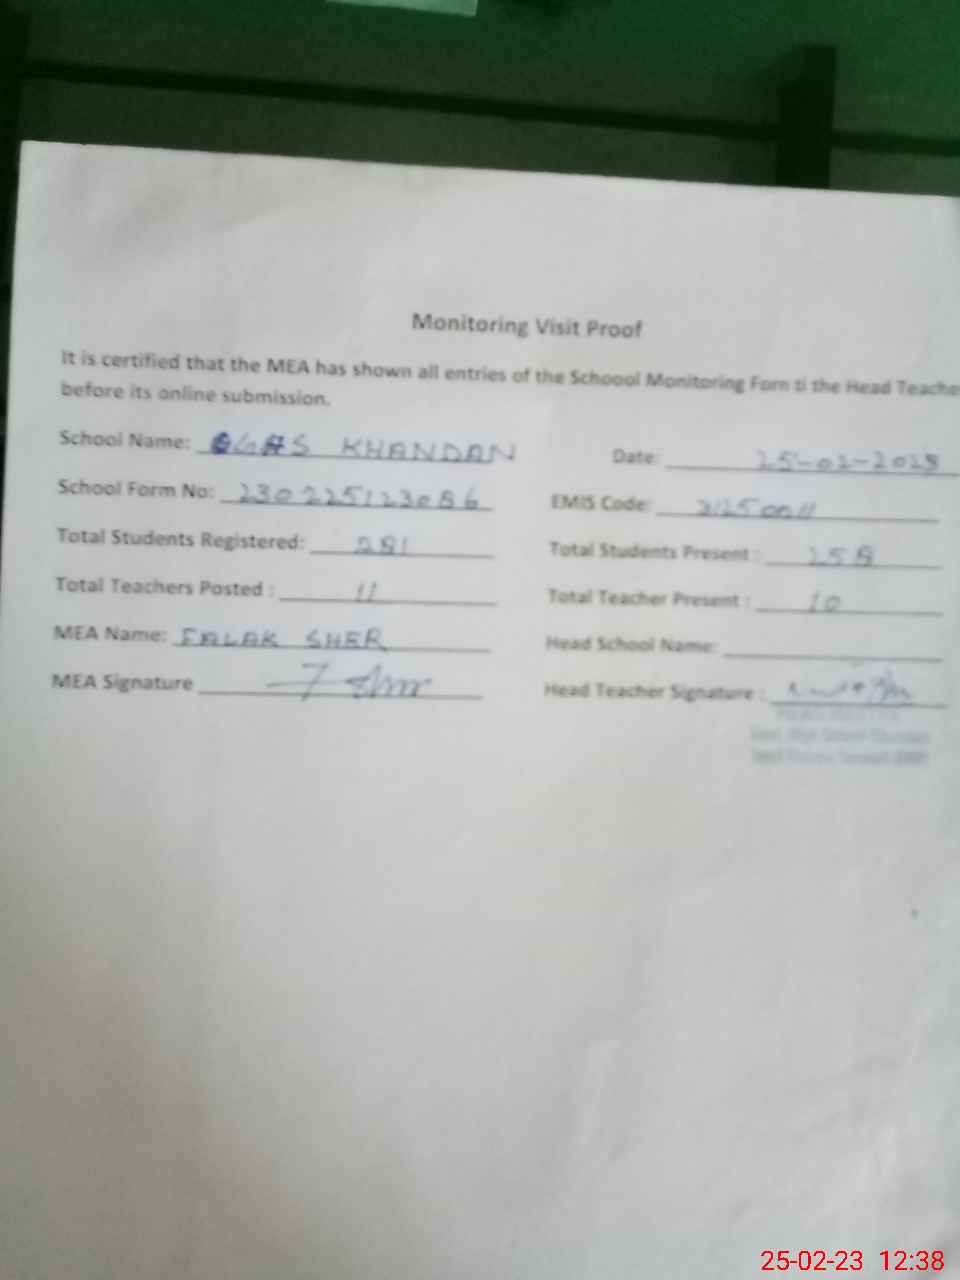 Monitoring Visit Proof
It is certified that the MEA has shown all entries of the Schoool Monitoring Forn ti the Head Teache
before its online submission.
School Name: GHS KHANDAN Date: 25-02-2023
School Form No: 230225123086 EMIS Code: 31250011
Total Students Registered: 281 Total Students Present : 258
Total Teachers Posted : 11 Total Teacher Present : 10
MEA Name: FALAK SHER Head School Name:
MEA Signature Head Teacher Signature :
25-02-23 12:38